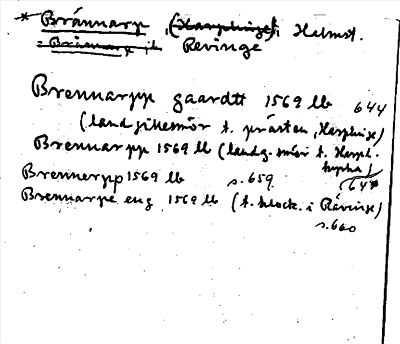 * Brännarp, (Harplinge), Halmst.
= Brännarp i Revinge
Brennarpp gaardtt 1569 lb 644
(landgillesmör t. prästen, Harplinge)
Brennarpp 1569 lb (landg. smör t. Harpl.
kyrka) 644
Brennerpp 1569 lb s. 659
Brennarpe eng 1569 lb (t. klock. i Révinge)
s. 660